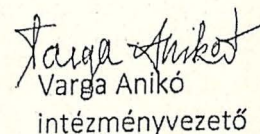 Varga Anikó
Varga Anikó
intézményvezető